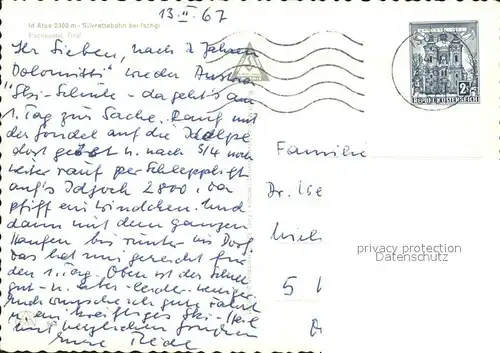 13. II. 67
Id Alpe 2300 m - Silvrettabahn bei Ischgl
Paznauntal, Tirol
Ihr Lieben, nach 2 Jahren
Dolomitti wieder Austria
"Ski-Schule - da geht's am
1. Tag zur Sache. Rauf mit
der Gondel auf die Idalpe
dort geübt u. nach 5/4 noch
weiter rauf per Schlepplift
auf's Idjoch 2800, da
pfiff ein Windchen. Und
dann mit dem ganzen
Haufen bis runter ins Dorf.
das hat mir gereicht für
den 1. Tag. Oben ist der Schnee
gut - u. aber - leider - weniger.
Und wünsche ich gute Fahrt
mit ein kräftiges Ski-Heil
und herzlichen Grüßen
Eure
2 S
REPUBLIK ÖSTERREICH
Familie
Dr.
5
privacy protection
Datenschutz